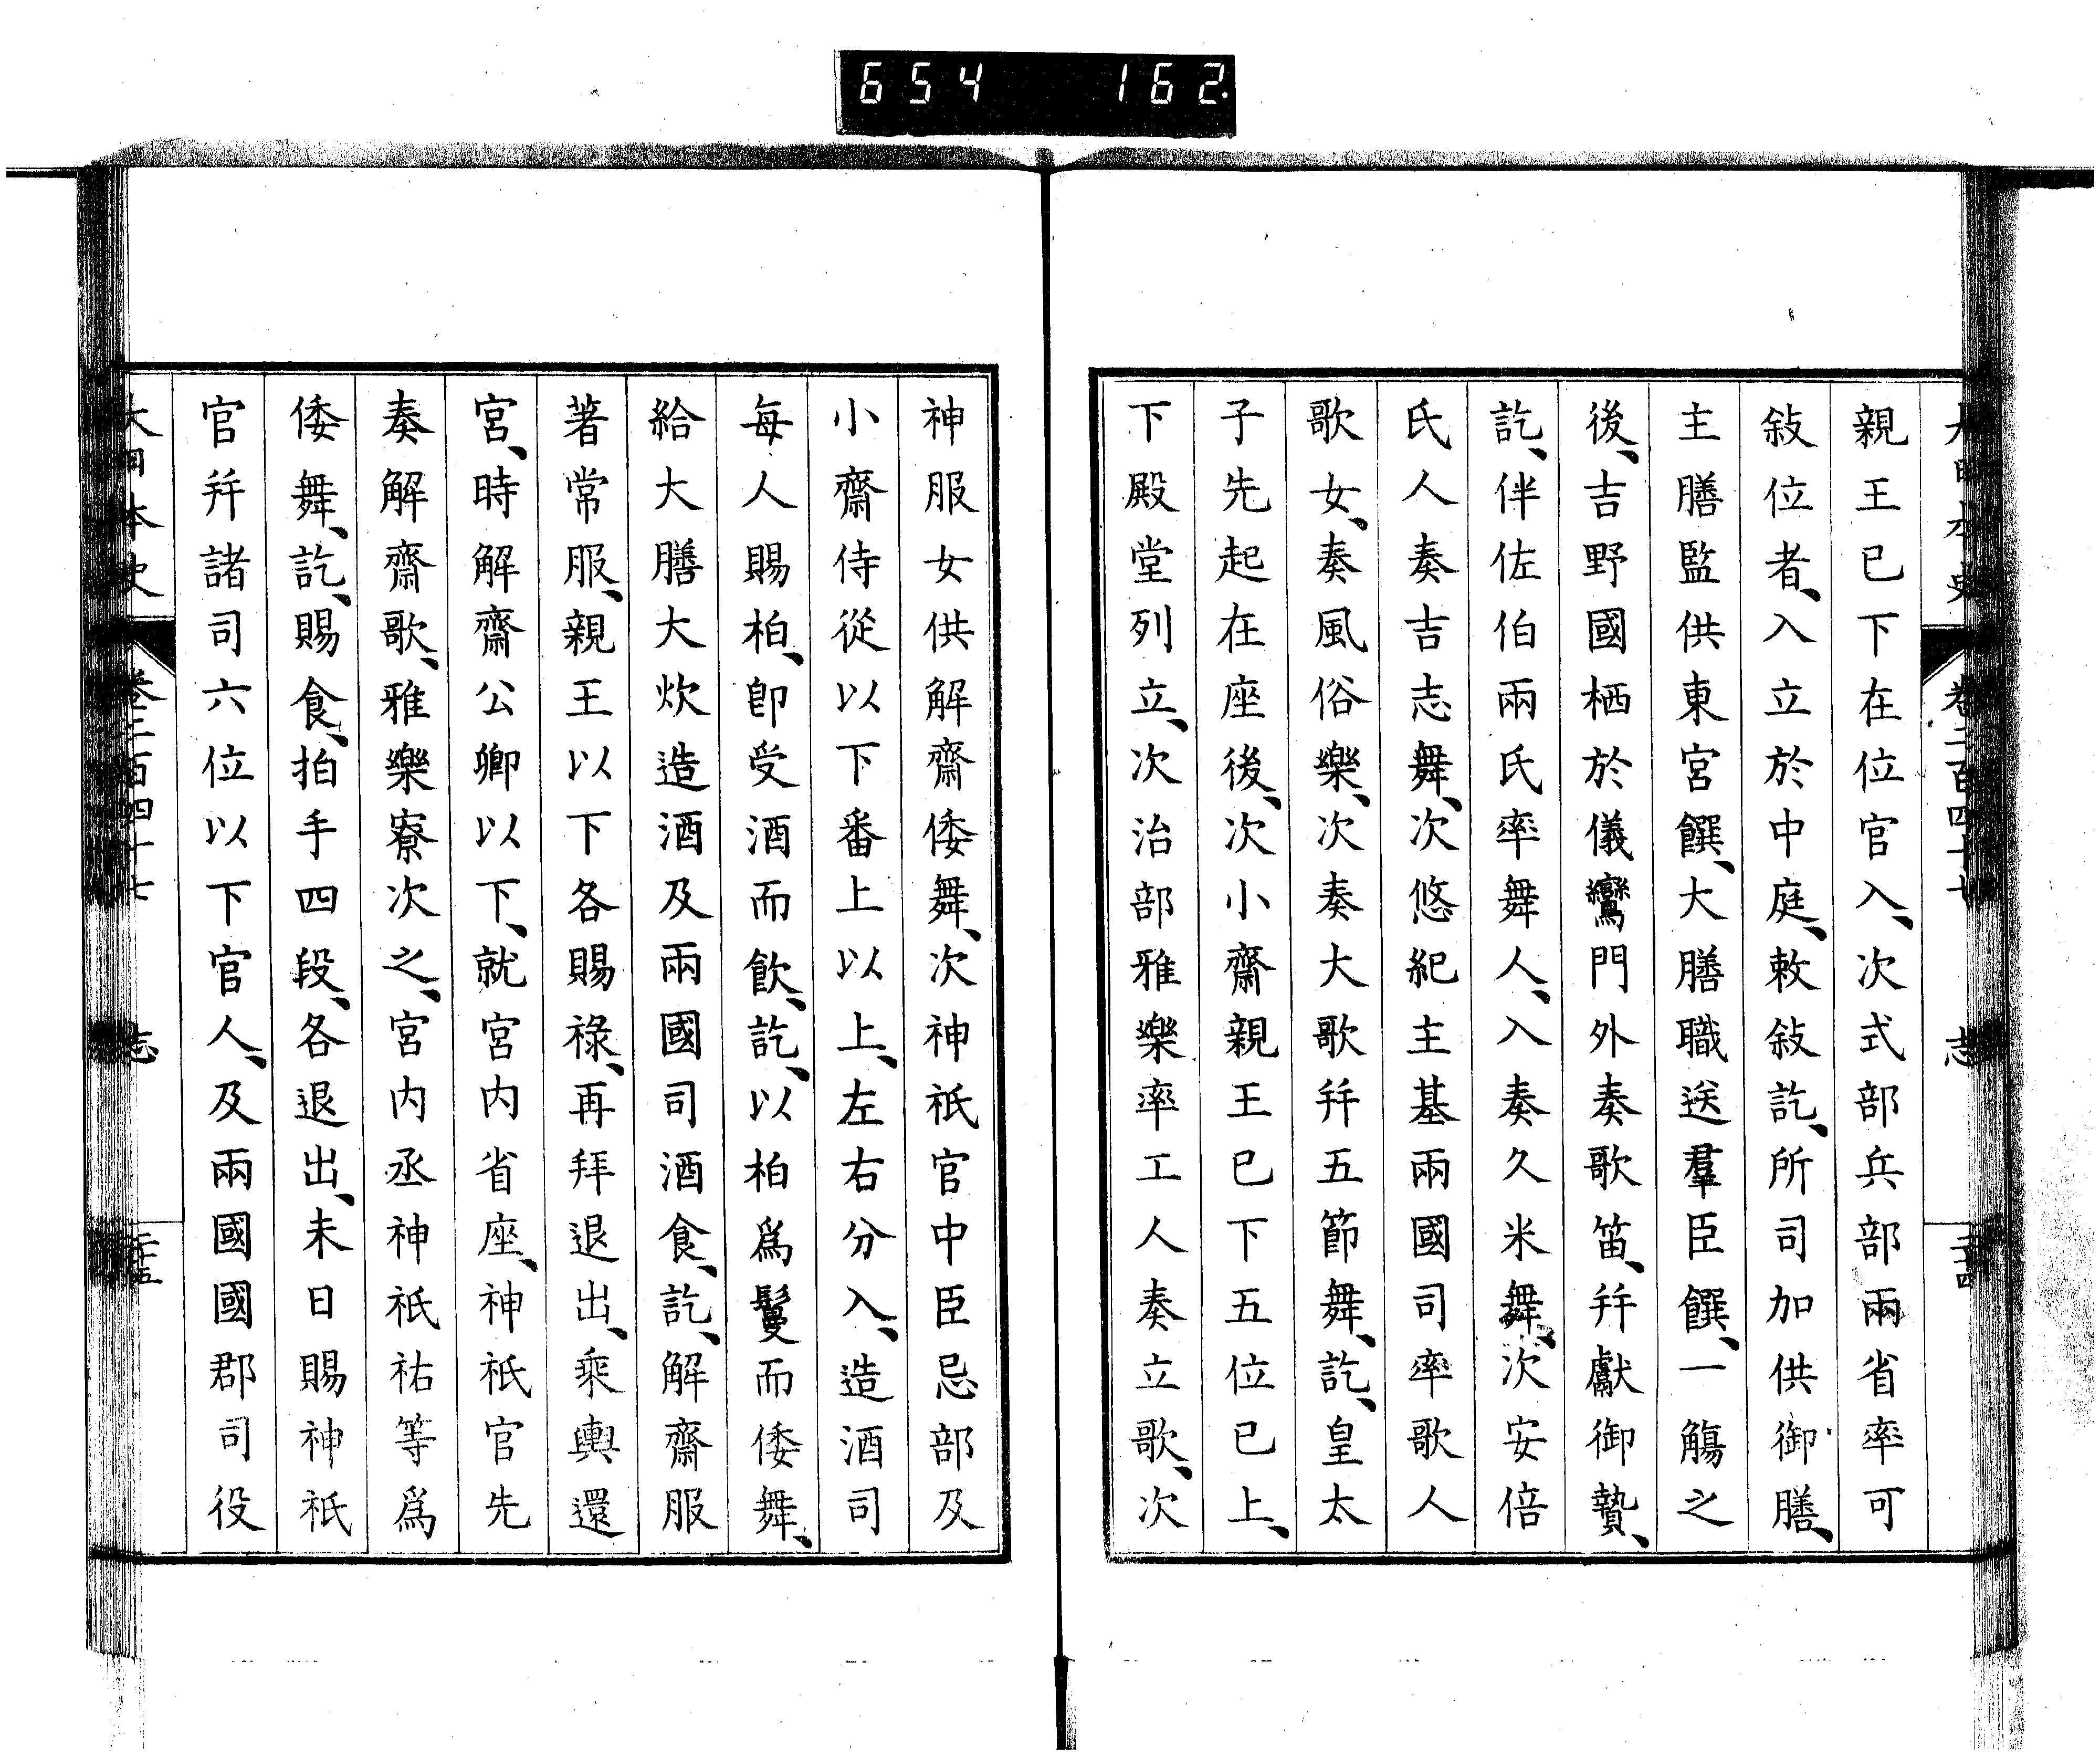 654 162
大日本史 卷二百四十七 志 二十四
親王已下在位官入、次式部兵部兩省率可
敍位者、入立於中庭、敕敍訖、所司加供御膳、
主膳監供東宮饌、大膳職送羣臣饌、一觴之
後、吉野國栖於儀鸞門外奏歌笛、幷獻御贄、
訖、伴佐伯兩氏率舞人、入奏久米舞、次安倍
氏人奏吉志舞、次悠紀主基兩國司率歌人
歌女、奏風俗樂、次奏大歌幷五節舞、訖、皇太
子先起在座後、次小齋親王已下五位已上、
下殿堂列立、次治部雅樂率工人奏立歌、次
神服女供解齋倭舞、次神祇官中臣忌部及
小齋侍從以下番上以上、左右分入、造酒司
每人賜柏、卽受酒而飮、訖、以柏爲鬘而倭舞、
給大膳大炊造酒及兩國司酒食、訖、解齋服
著常服、親王以下各賜祿、再拜退出、乘輿還
宮、時解齋公卿以下、就宮內省座、神祇官先
奏解齋歌、雅樂寮次之、宮內丞神祇祐等爲
倭舞、訖、賜食、拍手四段、各退出、未日賜神祇
官幷諸司六位以下官人、及兩國國郡司役
大日本史 卷二百四十七 志 二十五